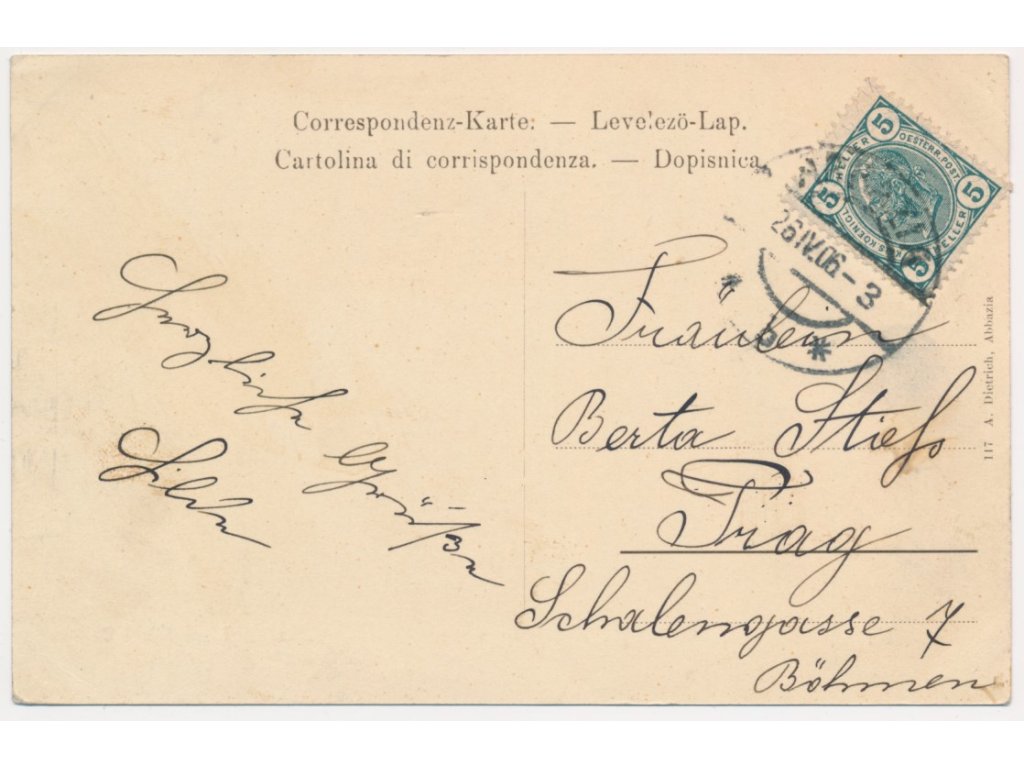 Correspondenz-Karte. — Levelező-Lap.
Cartolina di corrispondenza. — Dopisnica.
5 HELLER
OESTERR. POST.
5 HELLER
5
5
26 IV. 06 - 3
Herzliche Grüße
Fräulein
Berta Stieß
Prag
Schalengasse 7
Böhmen
117 A. Dietrich, Abbazia